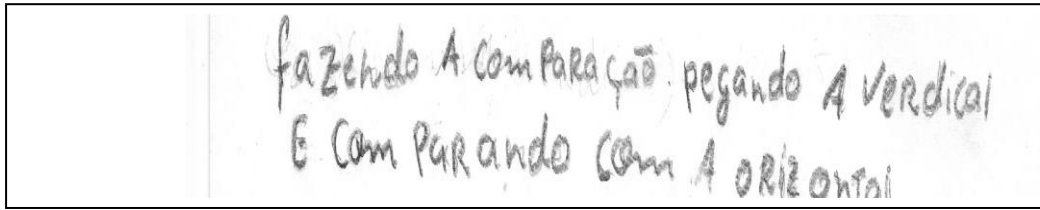 fazendo A comPaRação. pegando A veRdical
E Com PaRando com A oRizontal